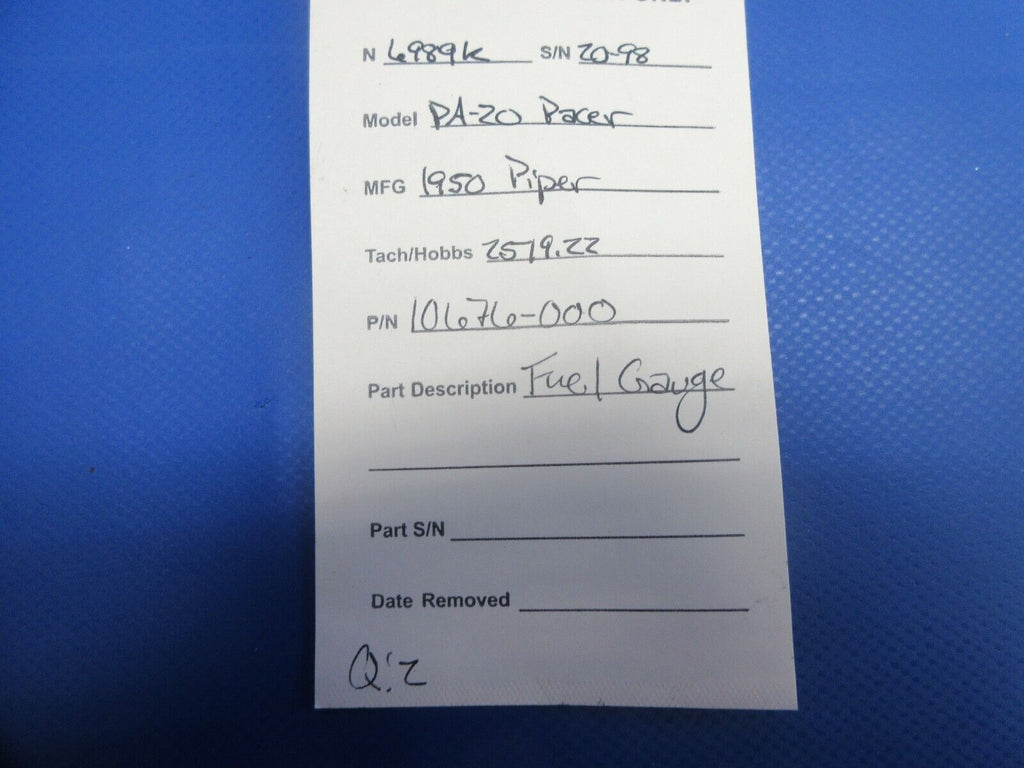 N 6989K S/N 20-98
Model PA-20 Pacer
MFG 1950 Piper
Tach/Hobbs 2519.22
P/N 10676-000
Part Description Fuel Gauge
Part S/N
Date Removed
Q:2